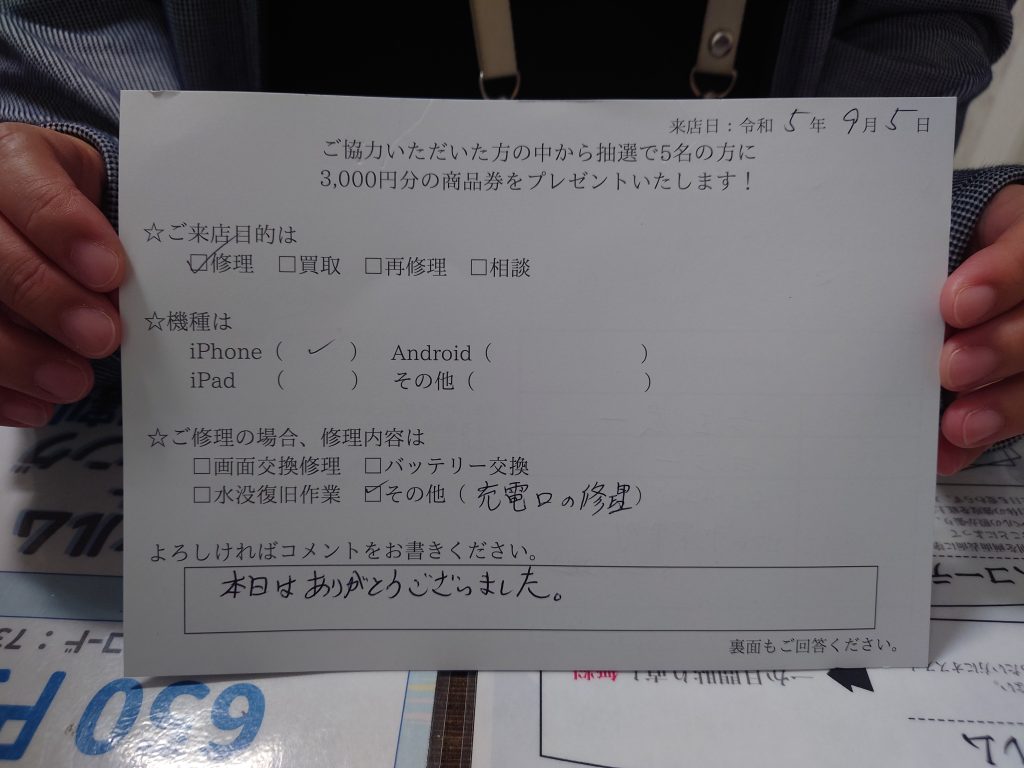 来店日：令和 5 年 9 月 5 日
ご協力いただいた方の中から抽選で5名の方に
3,000円分の商品券をプレゼントいたします！
☆ご来店目的は
☑修理 □買取 □再修理 □相談
☆機種は
iPhone（ ✓ ） Android（ ）
iPad （ ） その他（ ）
☆ご修理の場合、修理内容は
□画面交換修理 □バッテリー交換
□水没復旧作業 ☑その他（充電口の修理）
よろしければコメントをお書きください。
本日はありがとうございました。
裏面もご回答ください。
コード：73
650円
無料